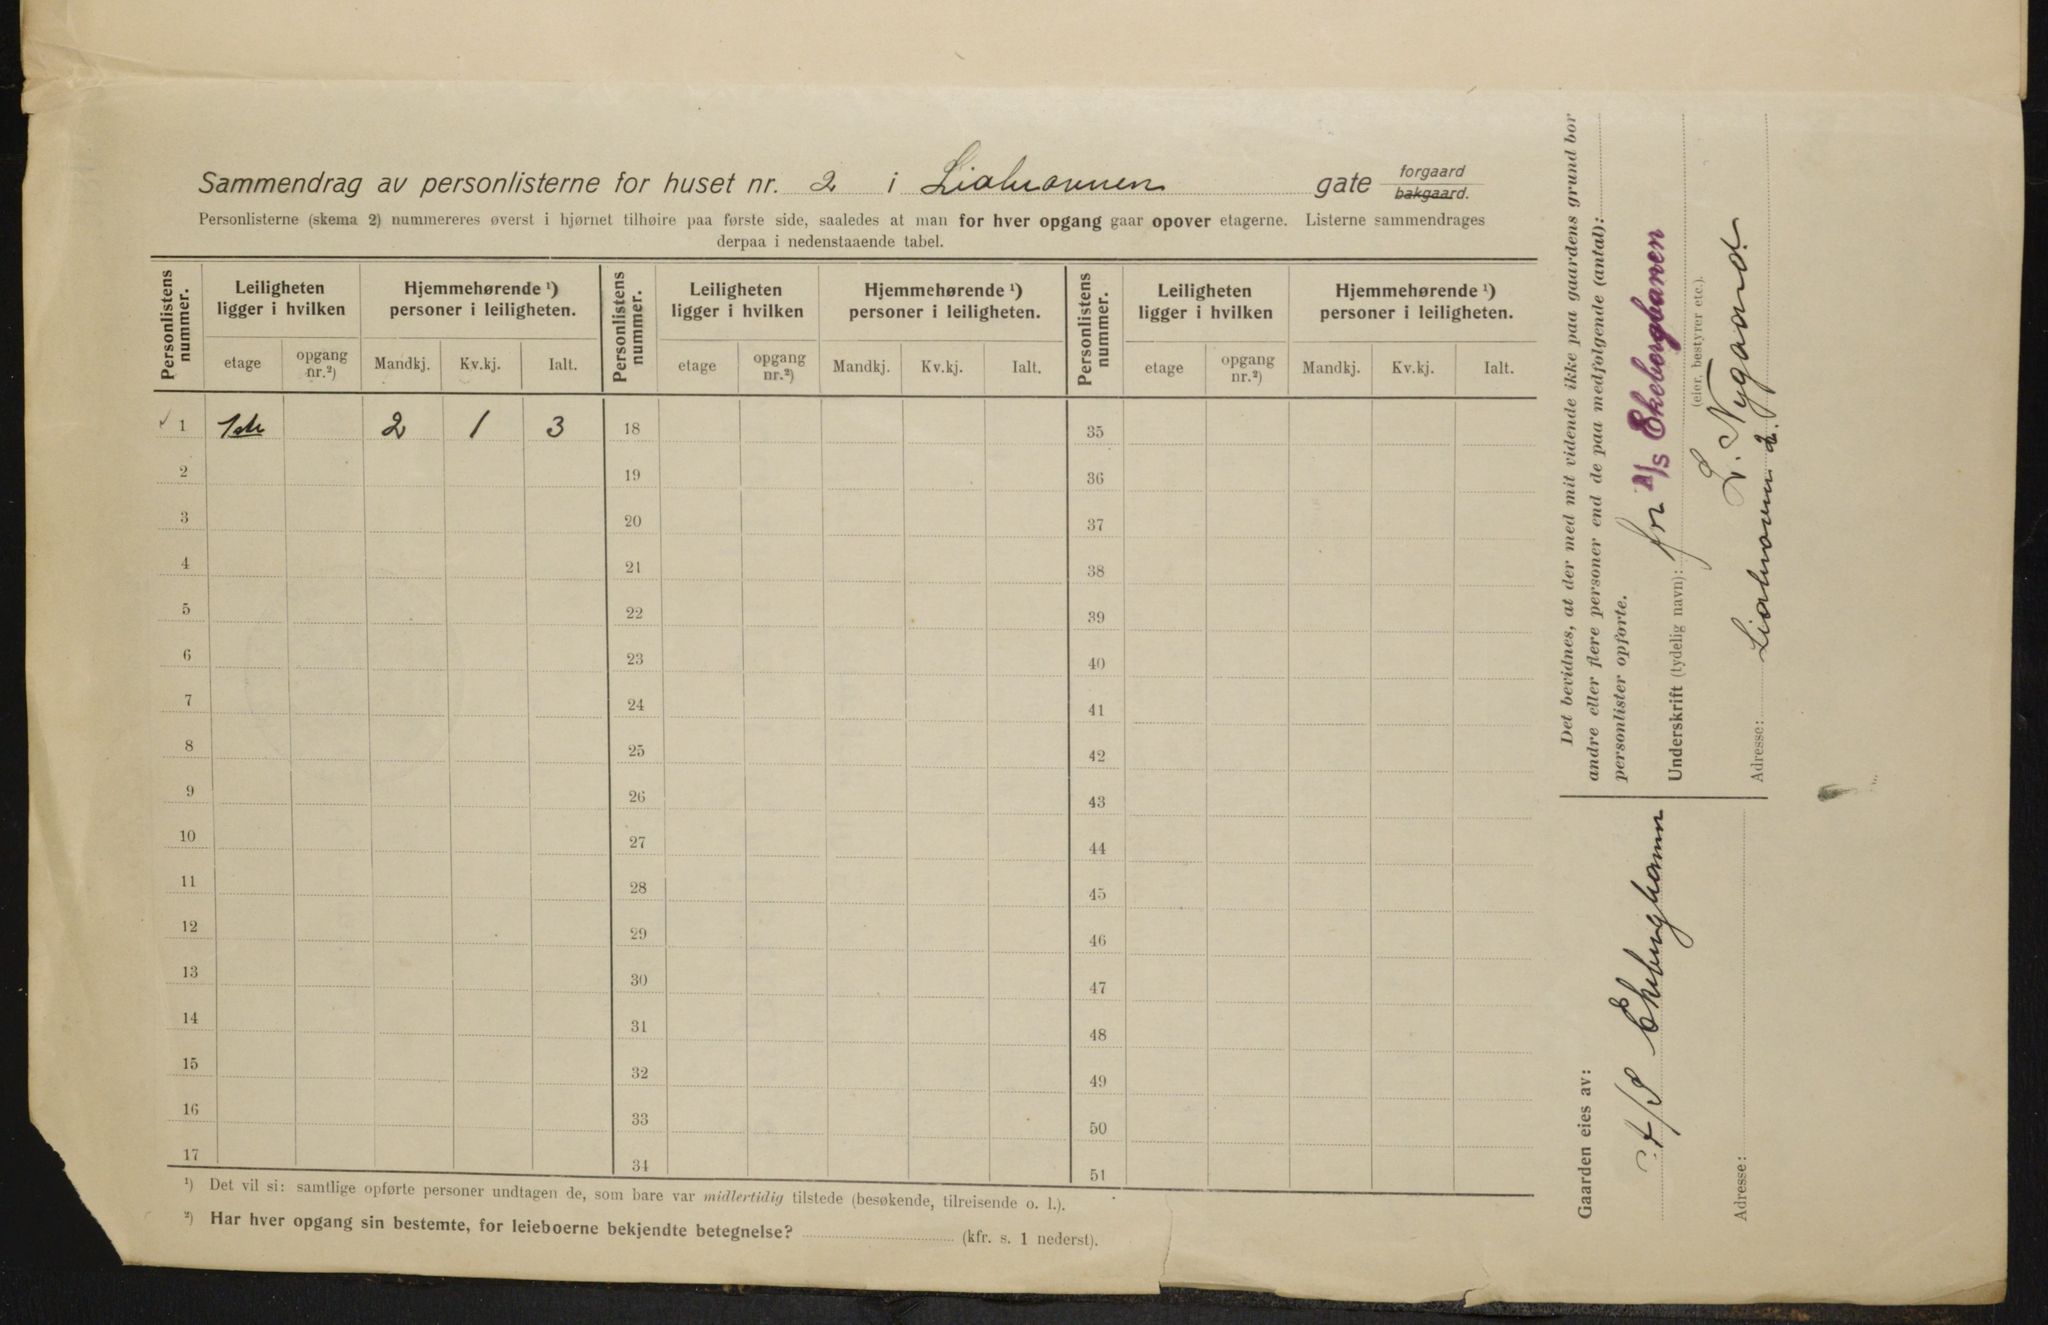 Sammendrag av personlisterne for huset nr. 2 i gate forgaard bakgaard.
Personlisterne (skema 2) nummereres øverst i hjørnet tilhøire paa første side, saaledes at man for hver opgang gaar opover etagerne. Listerne sammendrages
derpaa i nedenstaaende tabel.
Personlistens nummer. Leiligheten ligger i hvilken Hjemmehørende ¹) personer i leiligheten. Personlistens nummer. Leiligheten ligger i hvilken Hjemmehørende ¹) personer i leiligheten. Personlistens nummer. Leiligheten ligger i hvilken Hjemmehørende ¹) personer i leiligheten.
etage opgang nr.²) Mandkj. Kv.kj. Ialt. etage opgang nr.²) Mandkj. Kv.kj. Ialt. etage opgang nr.²) Mandkj. Kv.kj. Ialt.
1 1ste 2 1 3 18 35
2 19 36
3 20 37
4 21 38
5 22 39
6 23 40
7 24 41
8 25 42
9 26 43
10 27 44
11 28 45
12 29 46
13 30 47
14 31 48
15 32 49
16 33 50
17 34 51
¹) Det vil si: samtlige opførte personer undtagen de, som bare var midlertidig tilstede (besøkende, tilreisende o. l.).
²) Har hver opgang sin bestemte, for leieboerne bekjendte betegnelse? (kfr. s. 1 nederst).
Det bevidnes, at der med mit vidende ikke paa gaardens grund bor
andre eller flere personer end de paa medfølgende (antal):
personlister opførte.
for A/S Ekebergbanen
Underskrift (tydelig navn):
(eier, bestyrer etc.).
L. Nygaard
Adresse: 2.
Gaarden eies av:
A/S Ekebergbanen
Adresse: